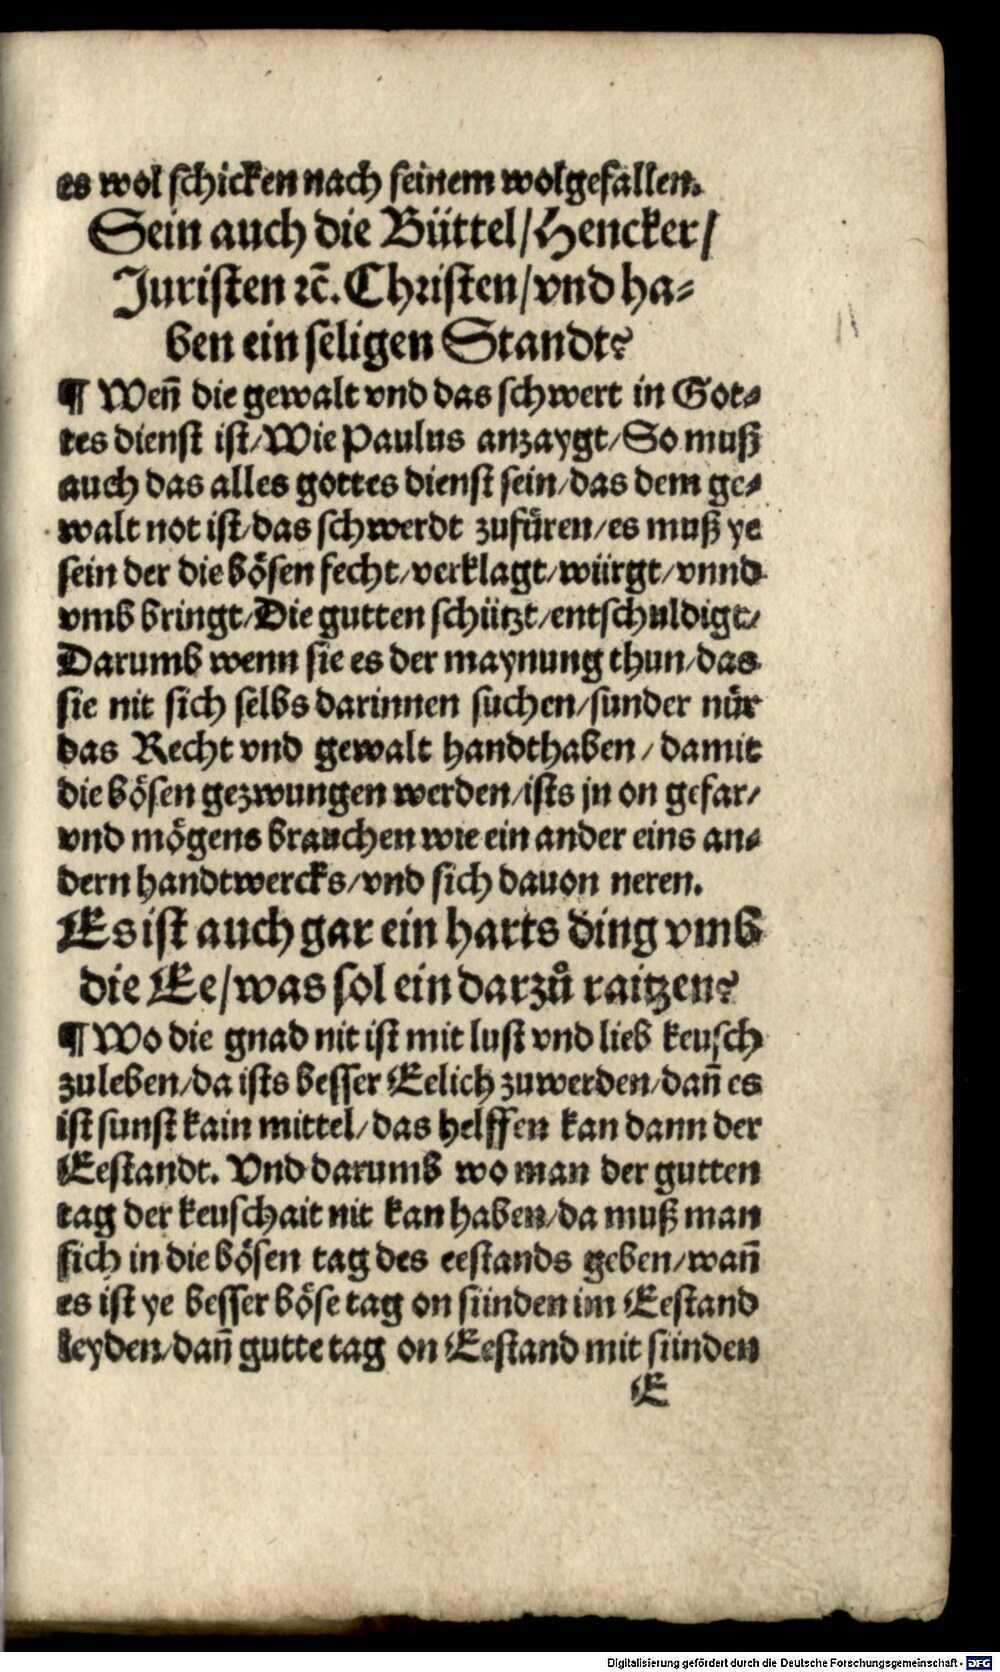 es wol schicken nach seinem wolgefallen.
Sein auch die Büttel/Hencker/
Juristen ꝛc̄. Christen/vnd ha⸗
ben ein seligen Standt?
¶ Weñ die gewalt vnd das schwert in Got⸗
tes dienst ist/Wie Paulus anzaygt/So muß
auch das alles gottes dienst sein/das dem ge⸗
walt not ist/das schwerdt zufüren/es muß ye
sein der die bösen fecht/verklagt/würgt/vnnd
vmb bringt/Die gutten schützt/entschuldigt/
Darumb wenn sie es der maynung thun/das
sie nit sich selbs darinnen suchen/sunder nůr
das Recht vnd gewalt handthaben/damit
die bösen gezwungen werden/ists jn on gefar/
vnd mögens brauchen wie ein ander eins an⸗
dern handtwercks/vnd sich dauon neren.
Es ist auch gar ein harts ding vmb
die Ee/was sol ein darzů raitzen?
¶ Wo die gnad nit ist mit lust vnd lieb keusch
zuleben/da ists besser Eelich zuwerden/dañ es
ist sunst kain mittel/das helffen kan dann der
Eestandt. Vnd darumb wo man der gutten
tag der keuschait nit kan haben/da muß man
sich in die bösen tag des eestands geben/wañ
es ist ye besser böse tag on sünden im Eestand
leyden/dañ gutte tag on Eestand mit sünden
E
Digitalisierung gefördert durch die Deutsche Forschungsgemeinschaft - DFG